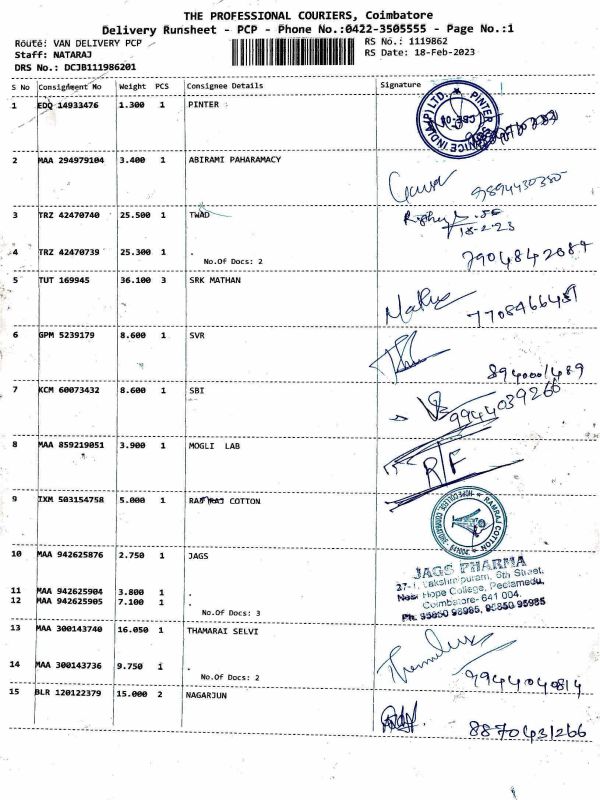 THE PROFESSIONAL COURIERS, Coimbatore
Delivery Runsheet - PCP - Phone No.:0422-3505555 - Page No.:1
Route: VAN DELIVERY PCP RS No.: 1119862
Staff: NATARAJ RS Date: 18-Feb-2023
DRS No.: DCJB111986201
S No Consignment No Weight PCS Consignee Details Signature
1 EDQ 14933476 1.300 1 PINTER
PINTER SERVICE INDIA (P) LTD. CBE-04
2 MAA 294979104 3.400 1 ABIRAMI PAHARAMACY
9894430350
3 TRZ 42470740 25.500 1 TWAD
18-2-23
4 TRZ 42470739 25.300 1 .
No.Of Docs: 2
7904842089
5 TUT 169945 36.100 3 SRK MATHAN
7708466451
6 GPM 5239179 8.600 1 SVR
8940001489
7 KCM 60073432 8.600 1 SBI
9944039266
8 MAA 859219051 3.900 1 MOGLI LAB
R/F
9 IXM 503154758 5.000 1 RAM RAJ COTTON
RAMRAJ COTTON
10 MAA 942625876 2.750 1 JAGS
JAGS PHARMA
27-1, Lakshmipuram, 5th Street,
Near Hope College, Peelamedu,
Coimbatore- 641 004.
Ph: 95850 95985, 95850 95985
11 MAA 942625904 3.800 1 .
12 MAA 942625905 7.100 1 .
No.Of Docs: 3
13 MAA 300143740 16.050 1 THAMARAI SELVI
14 MAA 300143736 9.750 1 .
No.Of Docs: 2
9944040814
15 BLR 120122379 15.000 2 NAGARJUN
8870431266